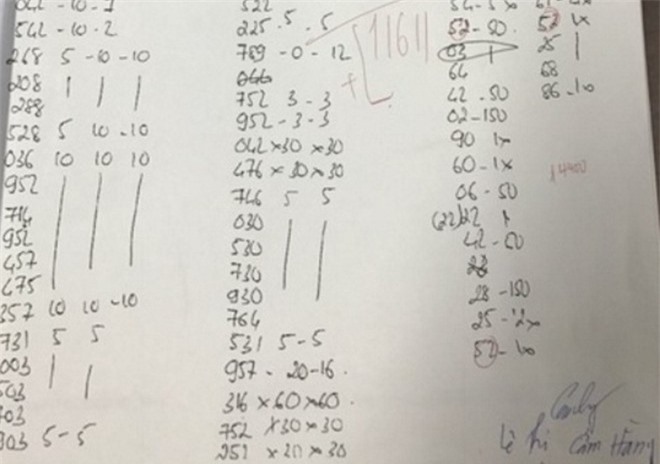 542-10-2
268 5-10-10
208
288
528 5 10-10
036 10 10 10
952
714
952
457
475
357 10 10-10
731 5 5
003
503
703
903 5-5
522
225.5-5
789-0-12
752 3-3
952-3-3
042×30×30
476×30×30
746 5 5
030
530
730
930
764
531 5-5
957-20-16.
316×60×60.
752×30×30
252×20×30
11611
52-50
03 1
64
42-50
02-150
90 1x
60-1x
06-50
(22)22 1
42-50
23
28-150
25-2x
52-1x
52 1x
25
68
86-1x
14400
Lê thị Cẩm Hằng